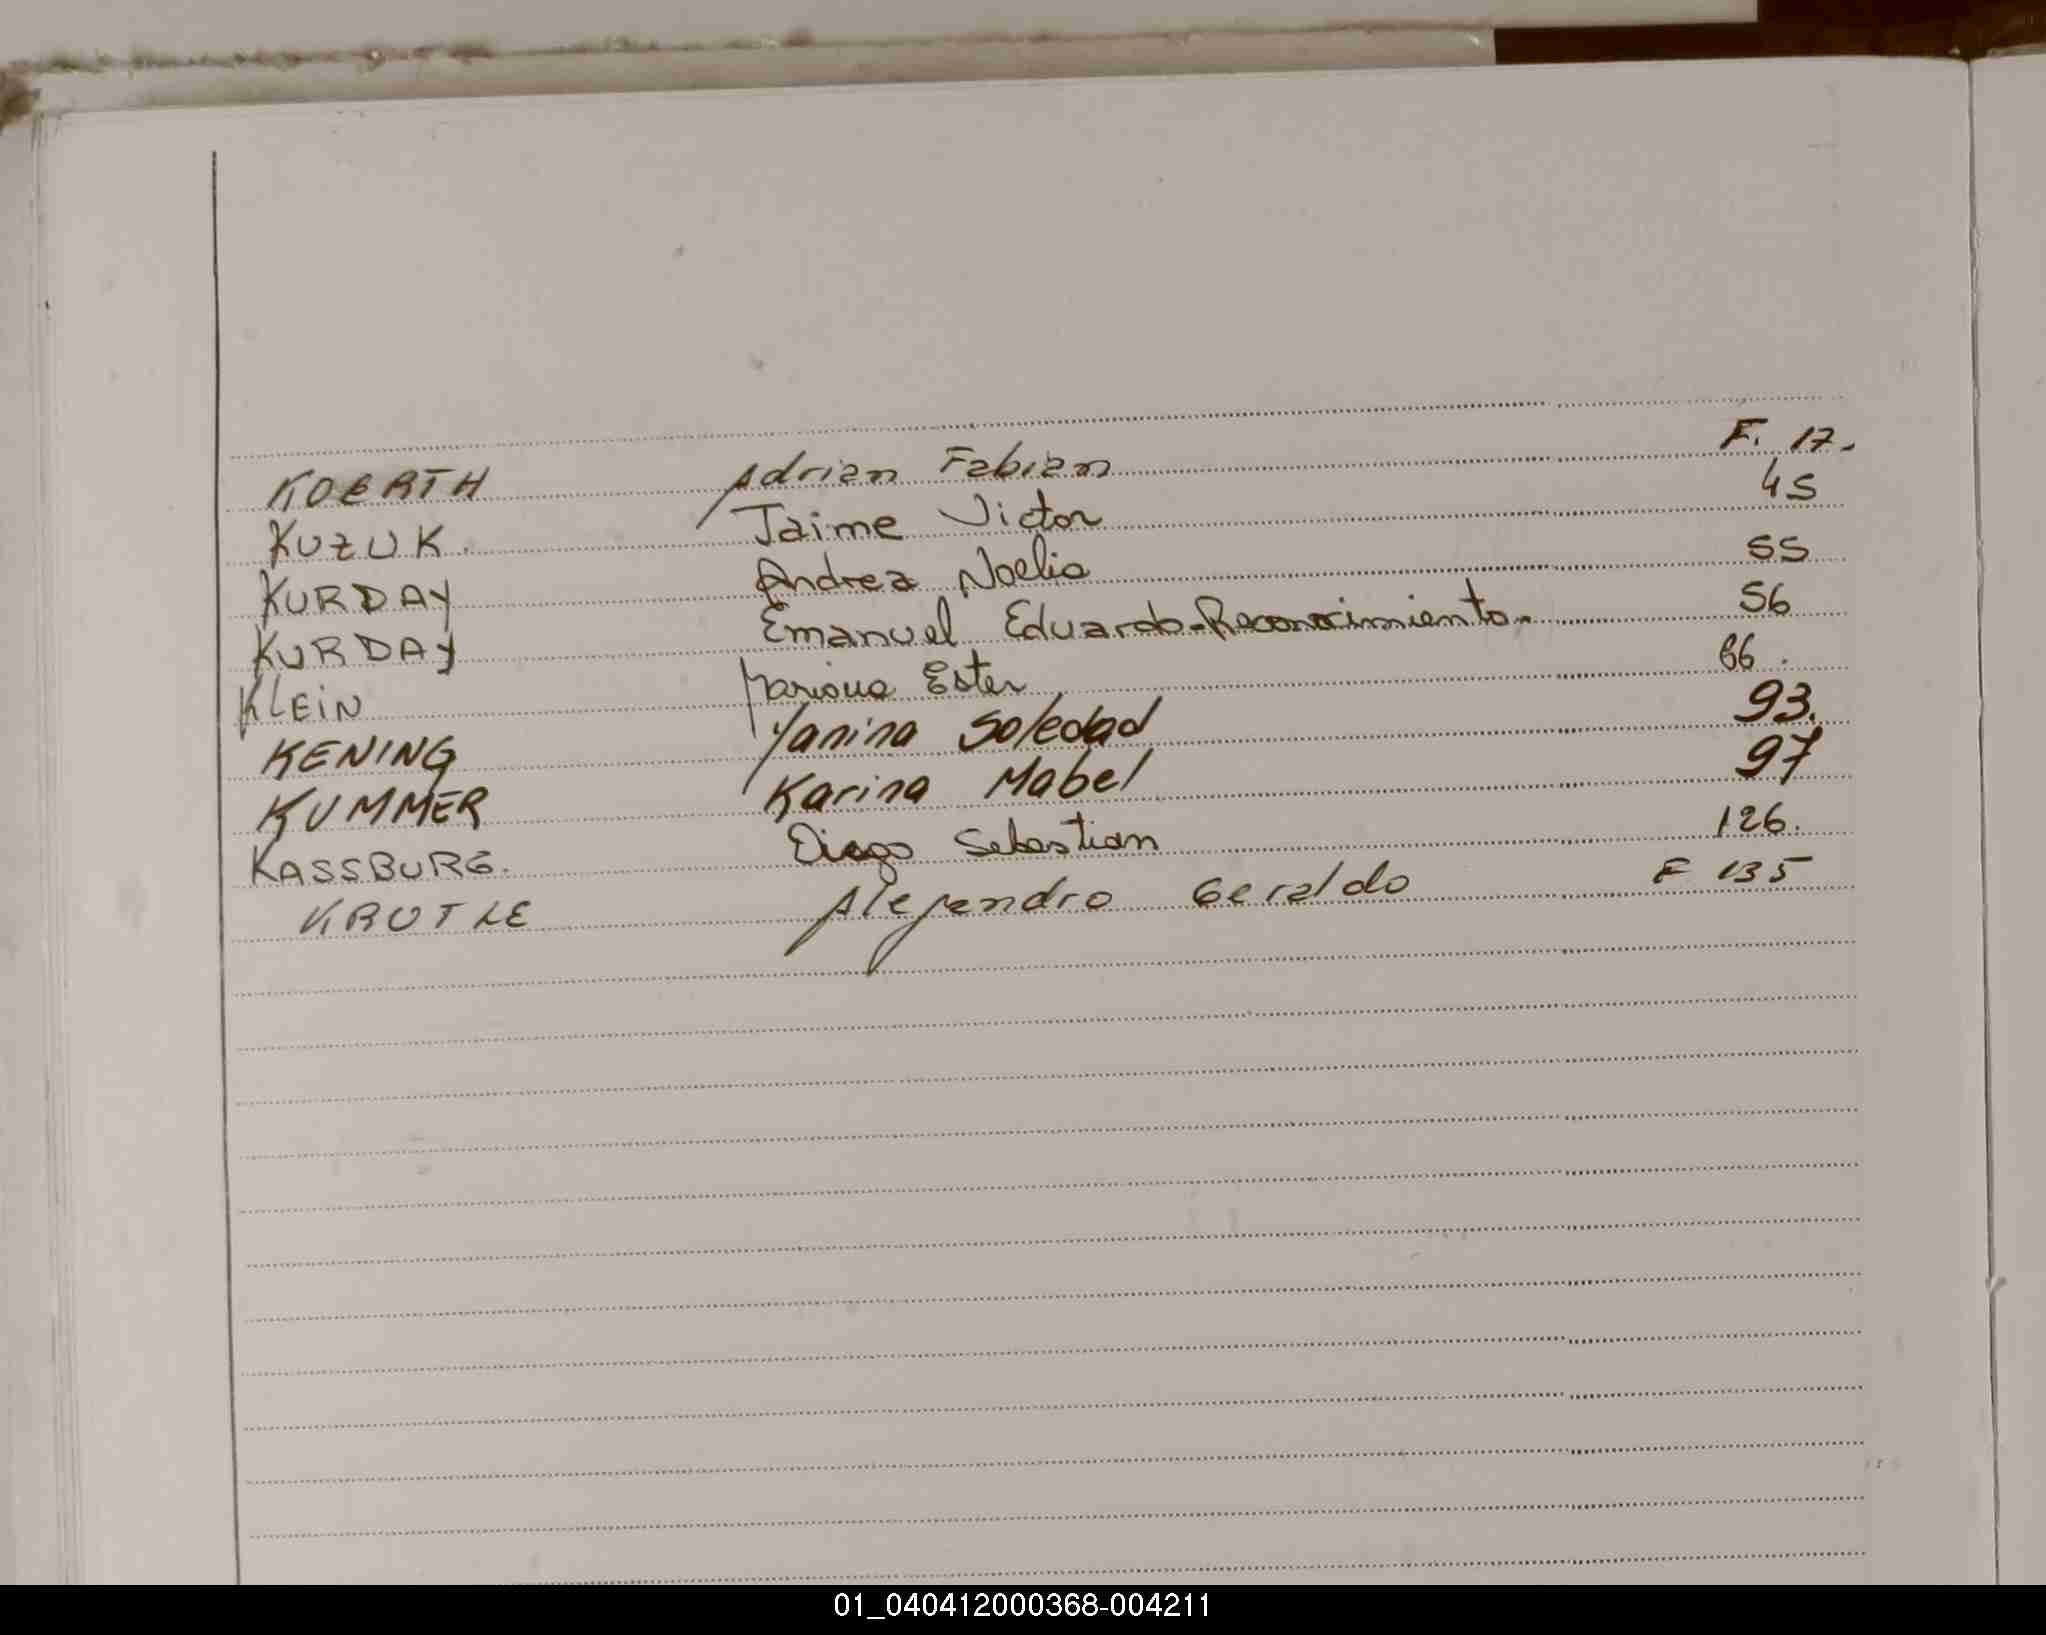 KOERTH Adrian Fabian F. 17.
KUZUK. Jaime Victor 45
KURDAY Andrea Noelia 55
KURDAY Emanuel Eduardo-Reconocimiento. 56
KLEIN Mariana Ester 66.
KENING Yanina Soledad 93.
KUMMER Karina Mabel 97
KASSBURG. Diego Sebastian 126.
KRUTLE Alejandro Geraldo F 135
01_040412000368-004211